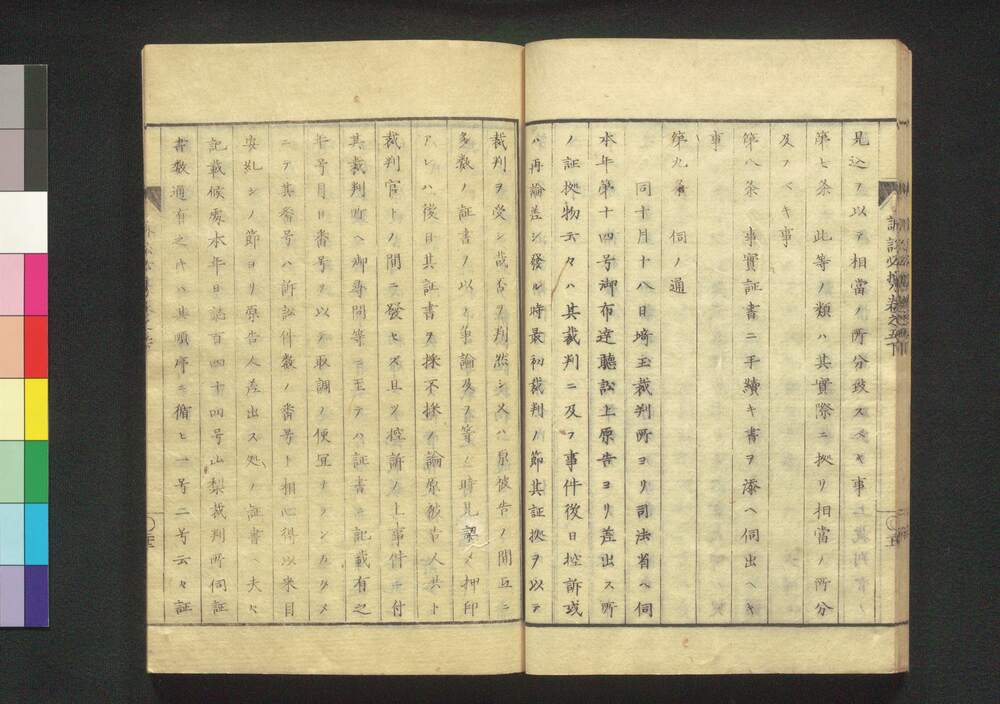 見込ヲ以テ相當ノ所分致スヘキ事
第七条 此等ノ類ハ其實際ニ拠リ相當ノ所分
及フヘキ事
第八条 事實証書ニ手續キ書ヲ添ヘ伺出ヘキ
事
第九条 伺ノ通
同十月十八日埼玉裁判所ヨリ司法省ヘ伺
本年第十四号御布達聽訟上原告ヨリ差出ス所
ノ証拠物云々ハ其裁判ニ及フ事件後日控訴或
ハ再論差シ發ル時最初裁判ノ節其証拠ヲ以テ
裁判ヲ受シ哉否ヲ判然シ又ハ原被告ノ間互ニ
多数ノ証書ノ以ヲ争論及フ等ノ時見認メ押印
アレハ後日其証書ヲ採不採ノ論原被告人共ト
裁判官トノ間ニ發セス且ツ控訴ノ上事件ニ付
其裁判所ヘ御尋問等ニ至テハ証書ニ記載有之
年号月日番号ヲ以テ取調ノ便宜ナランカタメ
ニテ其番号ハ訴訟件数ノ番号ト相心得以来目
安糺シノ節ヨリ原告人差出ス処ノ証書ヘ夫々
記載候處本年日誌百四十四号山梨裁判所伺証
書数通有之キハ其順序ニ循ヒ一号二号云々証